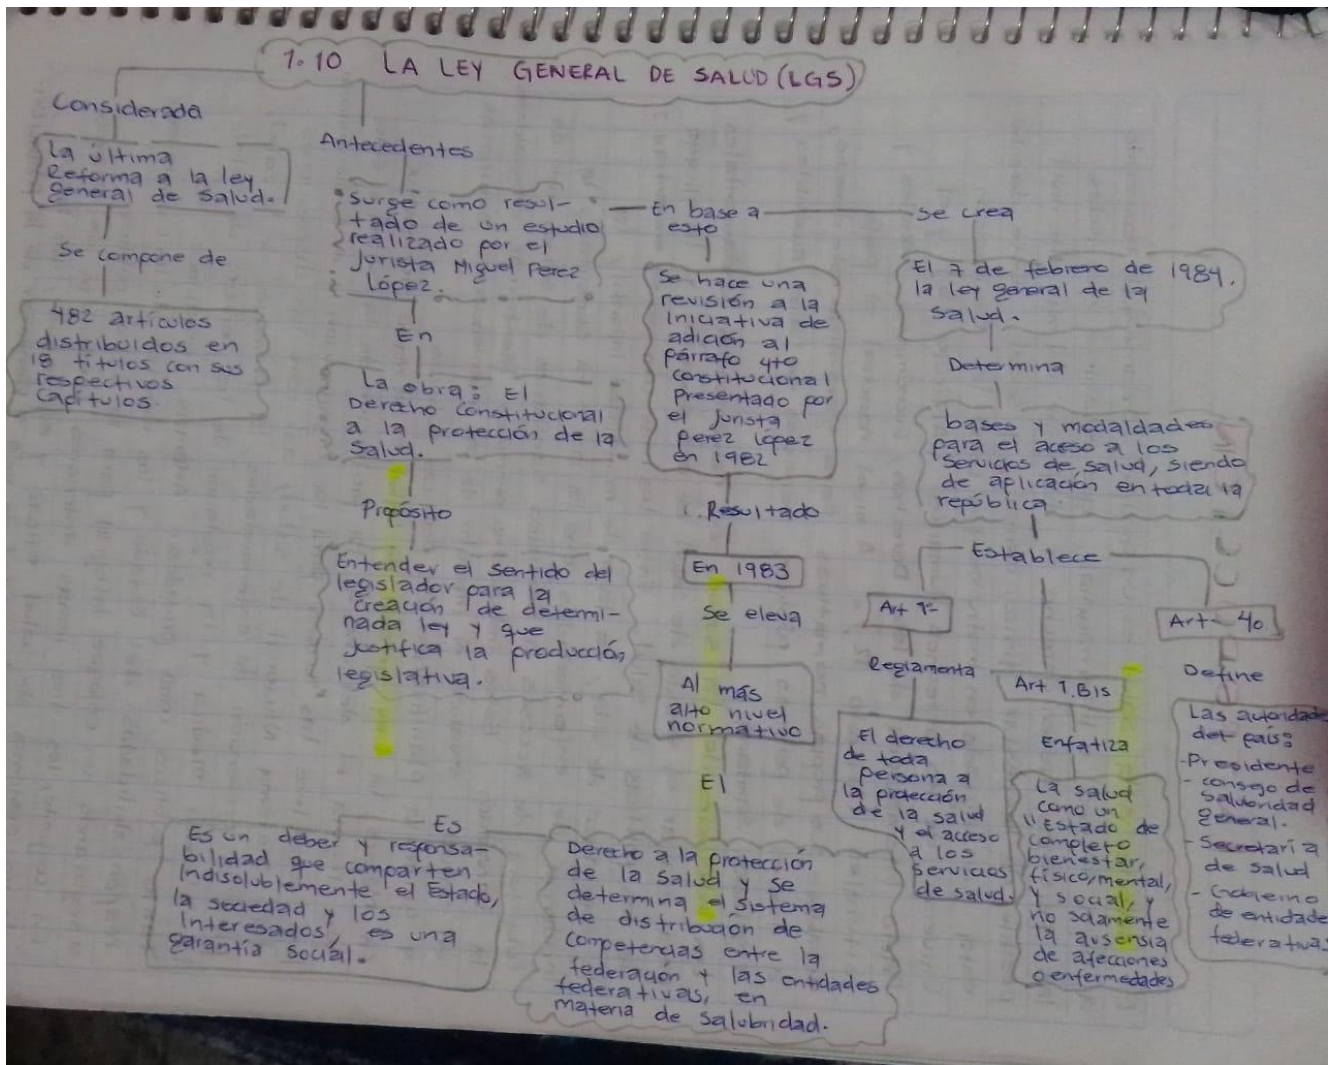 1.10 LA LEY GENERAL DE SALUD (LGS)
Considerada
La última
Reforma a la ley
general de salud.
Se compone de
482 artículos
distribuidos en
18 títulos con sus
respectivos
Capítulos.
Antecedentes
Surge como resul-
tado de un estudio
realizado por el
Jurista Miguel Perez
López.
En
La obra: El
Derecho Constitucional
a la protección de la
Salud.
Propósito
Entender el sentido del
legislador para la
creación de determi-
nada ley y que
justifica la producción
legislativa.
En base a
esto
Se hace una
revisión a la
Iniciativa de
adición al
párrafo 4to
constitucional
Presentado por
el Jurista
Perez López
en 1982
Resultado
En 1983
Se eleva
Al más
alto nivel
normativo
El
Derecho a la protección
de la salud y se
determina el sistema
de distribución de
competencias entre la
federación y las entidades
federativas, en
materia de salubridad.
Es
Es un deber y responsa-
bilidad que comparten
Indisolublemente el Estado,
la sociedad y los
Interesados, es una
garantía social.
Se crea
El 7 de febrero de 1984.
la ley general de la
Salud.
Determina
bases y modaldades
para el acceso a los
Servicios de salud, siendo
de aplicación en toda la
república
Establece
Art 1-
Reglamenta
El derecho
de toda
persona a
la protección
de la salud
y el acceso
a los
servicios
de salud.
Art 1.Bis
Enfatiza
La salud
como un
"Estado de
completo
bienestar,
físico, mental,
y social, y
no solamente
la ausensia
de afecciones
o enfermedades
Art- 4o.
Define
Las autoridade
del país:
-Presidente
- consejo de
Salubridad
general.
- Secretaría
de salud
- Gobierno
de entidade
federativas